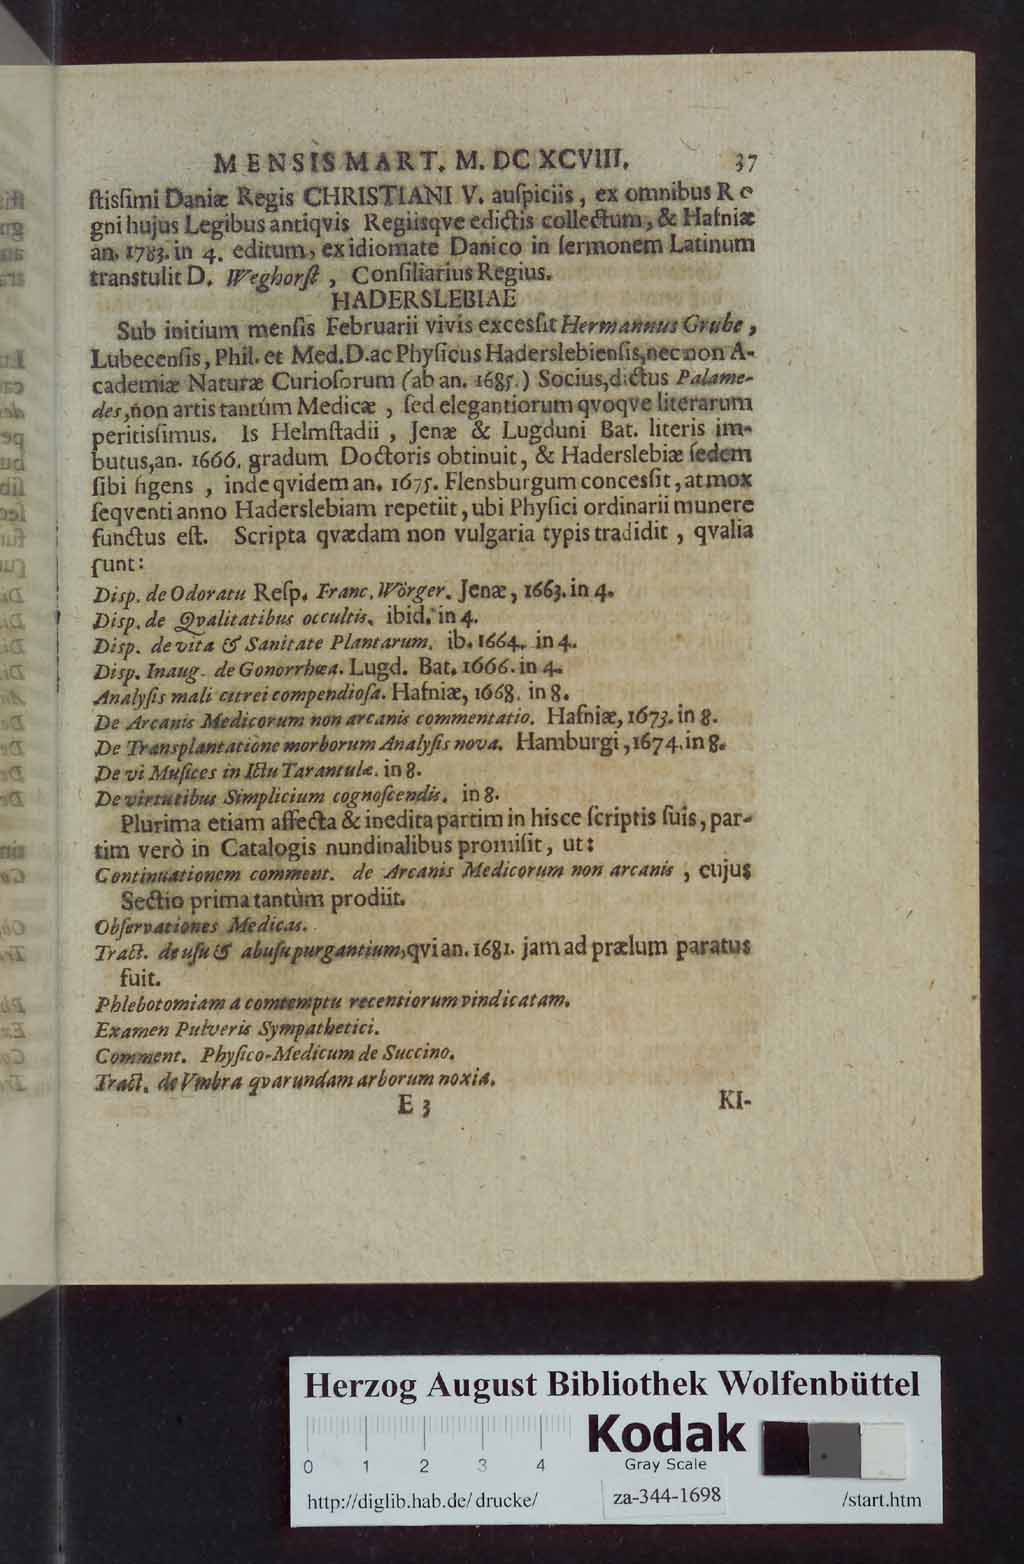 MENSIS MART. M. DC XCVIII. 37
ſtisſimi Daniæ Regis CHRISTIANI V. auſpiciis, ex omnibus Re
gni hujus Legibus antiqvis Regiisqve edictis collectum, & Hafniæ
an. 1783. in 4. editum, ex idiomate Danico in ſermonem Latinum
transtulit D. Weghorſt, Conſiliarius Regius.
HADERSLEBIAE
Sub initium menſis Februarii vivis excesſit Hermannus Grube,
Lubecenſis, Phil. et Med. D. ac Phyſicus Haderslebienſis, nec non A-
cademiæ Naturæ Curioſorum (ab an. 1685.) Socius, dictus Palame-
des, non artis tantùm Medicæ, ſed elegantiorum qvoqve literarum
peritisſimus. Is Helmſtadii, Jenæ & Lugduni Bat. literis im-
butus, an. 1666. gradum Doctoris obtinuit, & Haderslebiæ ſedem
ſibi figens, inde qvidem an. 1675. Flensburgum concesſit, at mox
ſeqventi anno Haderslebiam repetiit, ubi Phyſici ordinarii munere
functus eſt. Scripta qvædam non vulgaria typis tradidit, qvalia
ſunt:
Disp. de Odoratu Reſp. Franc. Wörger. Jenæ, 1663. in 4.
Disp. de Qvalitatibus occultis. ibid. in 4.
Disp. de vita & Sanitate Plantarum. ib. 1664. in 4.
Disp. Inaug. de Gonorrhœa. Lugd. Bat. 1666. in 4.
Analyſis mali citrei compendioſa. Hafniæ, 1668. in 8.
De Arcanis Medicorum non arcanis commentatio. Hafniæ, 1673. in 8.
De Transplantatione morborum Analyſis nova. Hamburgi, 1674. in 8.
De vi Muſices in Ictu Tarantulæ. in 8.
De virtutibus Simplicium cognoſcendis. in 8.
Plurima etiam affecta & inedita partim in hisce ſcriptis ſuis, par-
tim verò in Catalogis nundinalibus promiſit, ut:
Continuationem comment. de Arcanis Medicorum non arcanis, cujus
Sectio prima tantùm prodiit.
Obſervationes Medicas.
Tract. de uſu & abuſu purgantium, qvi an. 1681. jam ad prælum paratus
fuit.
Phlebotomiam a comtemptu recentiorum vindicatam.
Examen Pulveris Sympathetici.
Comment. Phyſico-Medicum de Succino.
Tract. de Vmbra qvarundam arborum noxia.
E 3 KI-
Herzog August Bibliothek Wolfenbüttel
Kodak
0 1 2 3 4 Gray Scale
http://diglib.hab.de/drucke/ za-344-1698 /start.htm